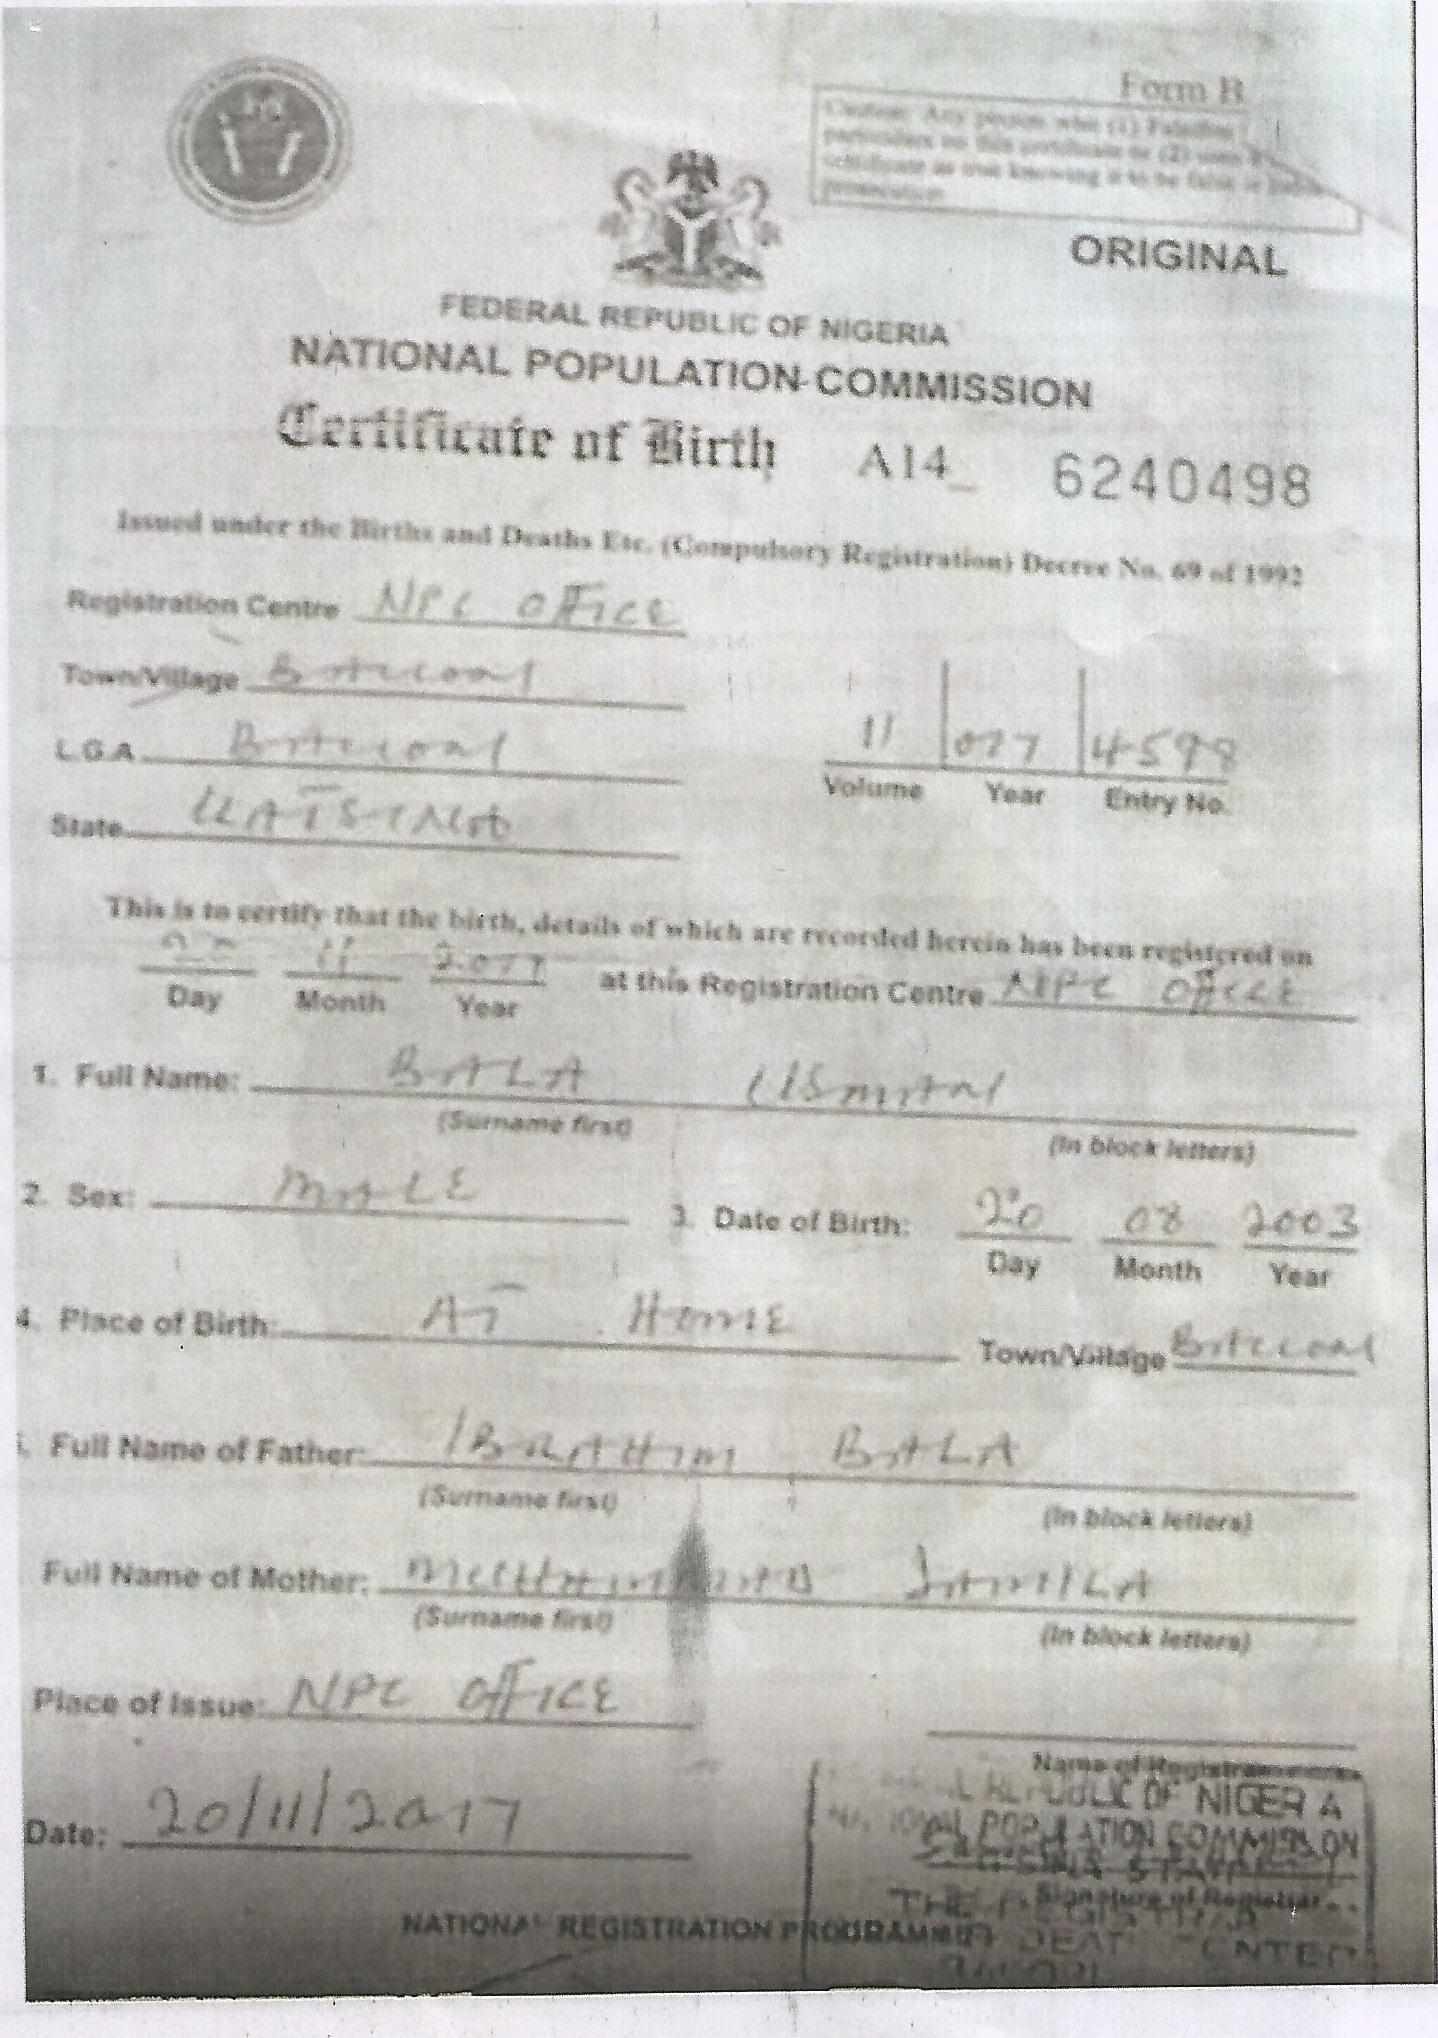 Form B
Caution: Any person who (1) Falsifies
particulars on this certificate or (2) uses a
certificate as true knowing it to be false is liable
prosecution
ORIGINAL
FEDERAL REPUBLIC OF NIGERIA
NATIONAL POPULATION COMMISSION
Certificate of Birth A14_ 6240498
Issued under the Births and Deaths Etc. (Compulsory Registration) Decree No. 69 of 1992
Registration Centre NPC OFFICE
Town/Village
L.G.A.
11 4598
Volume Year Entry No.
State KATSINA
This is to certify that the birth, details of which are recorded herein has been registered on
11 2017 at this Registration Centre NPC OFFICE
Day Month Year
1. Full Name: BALA USMAN
(Surname first) (In block letters)
2. Sex: MALE 3. Date of Birth: 20 08 2003
Day Month Year
4. Place of Birth: AT HOME Town/Village
Full Name of Father: IBRAHIM BALA
(Surname first) (In block letters)
Full Name of Mother: MUHAMMAD JAMILA
(Surname first) (In block letters)
Place of Issue: NPC OFFICE
Name of Registrar
Date: 20/11/2017
REPUBLIC OF NIGERIA
POPULATION COMMISSION
Signature of Registrar
NATIONAL REGISTRATION PROGRAMME